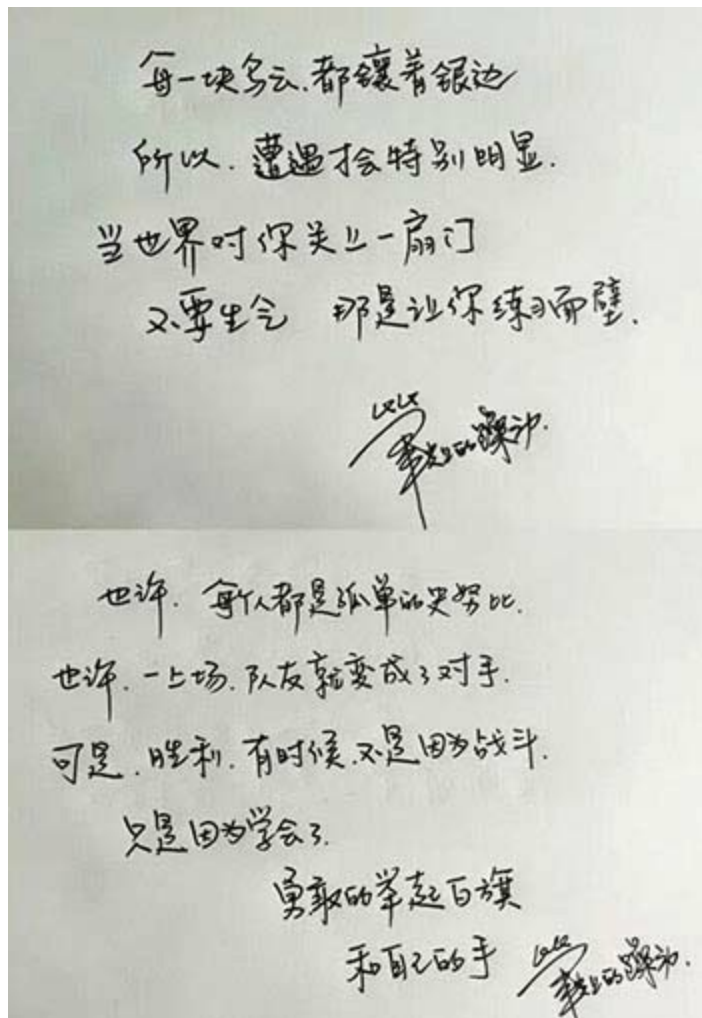 每一块乌云.都镶着银边
所以.遭遇才会特别明显.
当世界对你关上一扇门
不要生气 那是让你练习面壁.
也许.每个人都是孤单的史努比.
也许.一上场.队友就变成了对手.
可是.胜利.有时候.不是因为战斗.
只是因为学会了.
勇敢的举起白旗
和自己的手